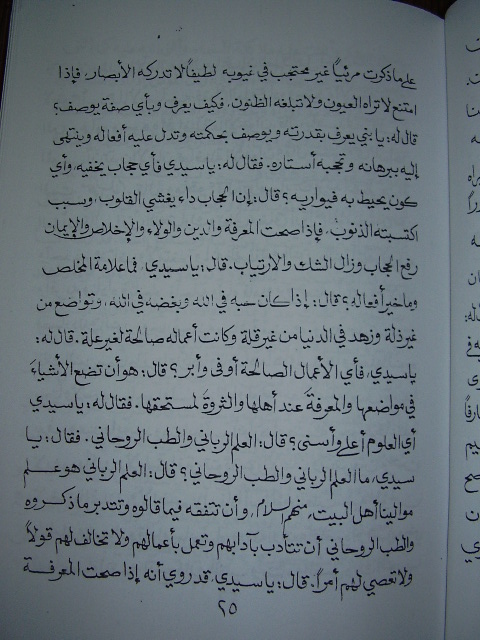 على ما ذكرت مرئياً غير محتجب في غيوبه لطيفاً لا تدركه الأبصار، فإذا
امتنع لا تراه العيون ولا تبلغه الظنون، فكيف يعرف وبأي صفة يوصف؟
قال له: يا بني يعرف بقدرته ويوصف بحكمته وتدل عليه أفعاله وينتهى
إليه ببرهانه وتحجبه أستاره. فقال له: يا سيدي فأي حجاب يخفيه، وأي
كون يحيط به فيواريه؟ قال: إن الحجاب داء يغشي القلوب، وسبب
اكتسبته الذنوب، فإذا صحت المعرفة والدين والولاء والإخلاص والإيمان
رفع الحجاب وزال الشك والارتياب. قال: يا سيدي، فما علامة المخلص
وما خير أفعاله؟ قال: إذا كان حبه في الله وبغضه في الله، وتواضع من
غير ذلة وزهد في الدنيا من غير قلة وكانت أعماله صالحة لغير علة. قال له:
يا سيدي، فأي الأعمال الصالحة أوفى وأبر؟ قال: هو أن تضع الأشياءَ
في مواضعها والمعرفةَ عند أهلها والثروةَ لمستحقها. فقال له: يا سيدي
أي العلوم أعلى وأسنى؟ قال: العلم الرباني والطب الروحاني. فقال: يا
سيدي، ما العلم الرباني والطب الروحاني؟ قال: العلم الرباني هو علم
موالينا أهل البيت، منهم السلام، وأن تتفقه فيما قالوه وتتدبر ما ذكروه
والطب الروحاني أن تتأدب بآدابهم وتعمل بأعمالهم ولا تخالف لهم قولاً
ولا تعصي لهم أمراً. قال: يا سيدي، قد روي أنه إذا صحت المعرفة
٢٥